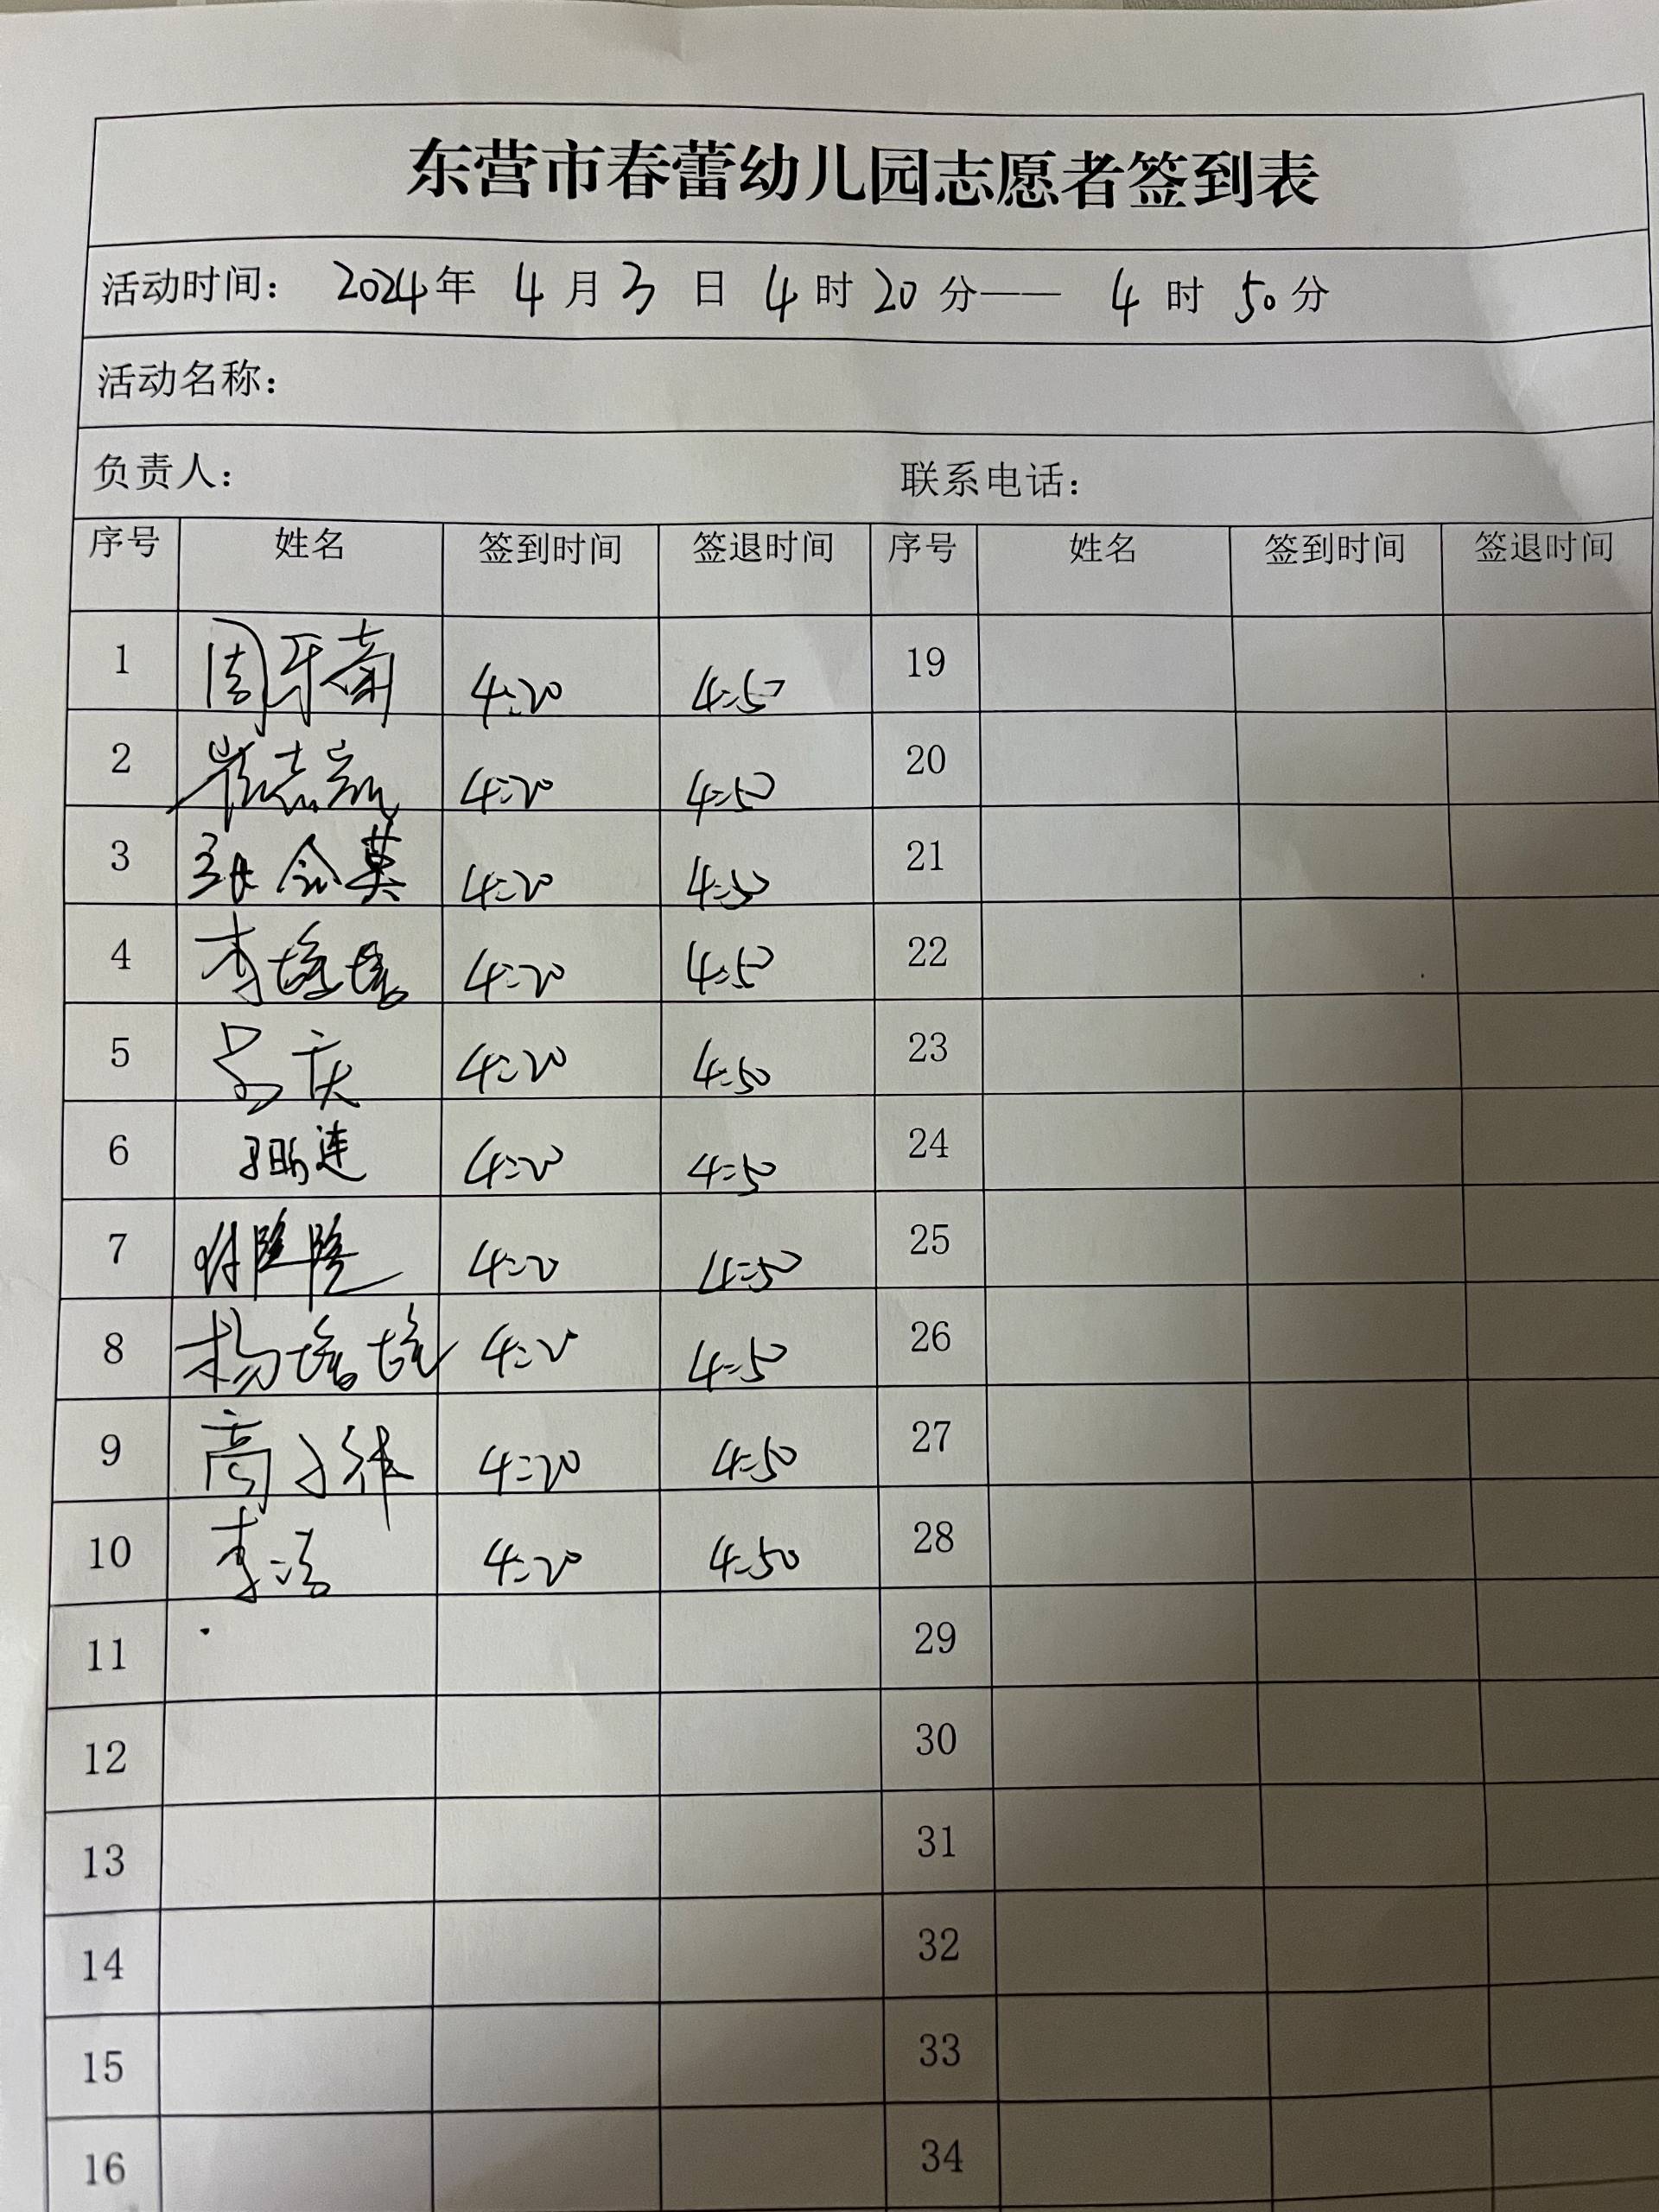 东营市春蕾幼儿园志愿者签到表
活动时间： 2024年 4月3日 4时20分—— 4时50分
活动名称：
负责人： 联系电话：
序号 姓名 签到时间 签退时间 序号 姓名 签到时间 签退时间
1 周 4:20 4:50 19
2 崔志 4:20 4:50 20
3 张 英 4:20 4:50 21
4 李培培 4:20 4:50 22
5 吕庆 4:20 4:50 23
6 连 4:20 4:50 24
7 4:20 4:50 25
8 杨培培 4:20 4:50 26
9 高 4:20 4:50 27
10 李洁 4:20 4:50 28
11 29
12 30
13 31
14 32
15 33
16 34